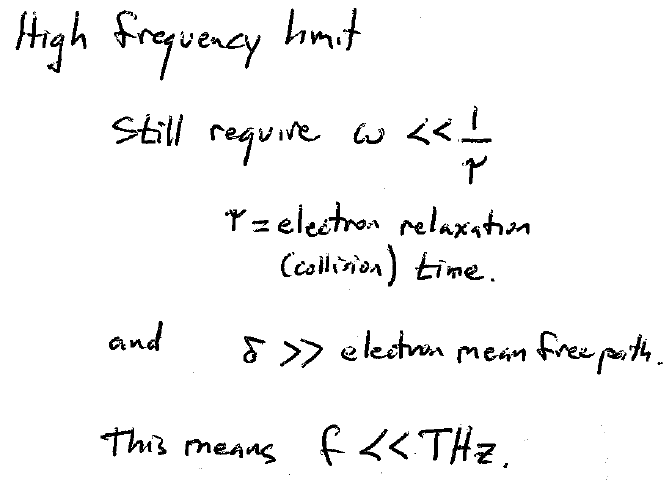 High frequency limit
Still require ω << 1/τ
τ = electron relaxation
(collision) time.
and δ >> electron mean free path.
This means f << THz.